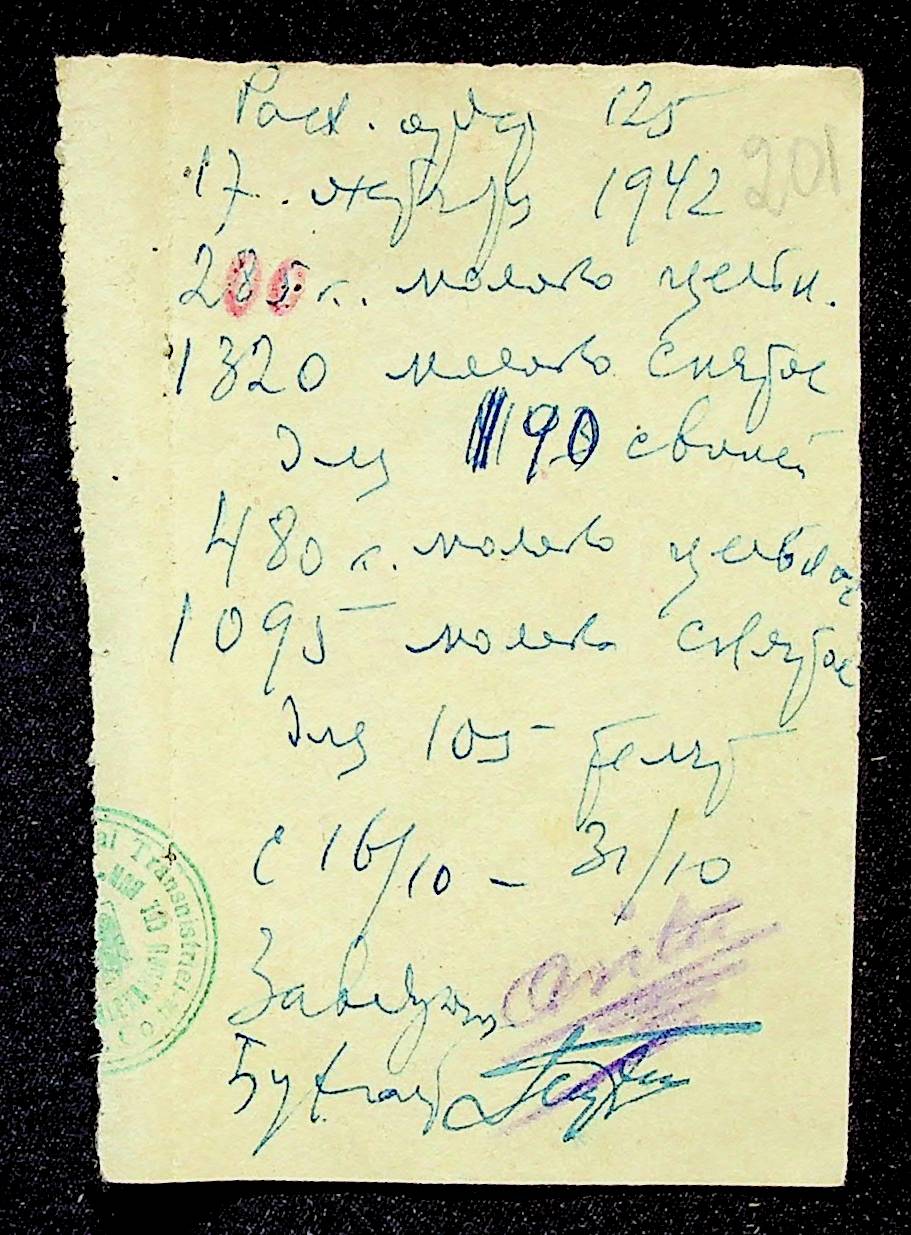 Расх. ордер 125
201
17. октября 1942
285 к. молоко цельн.
1320 молоко снятое
Для 190 свиней
480 к. молоко цельное
1095 молоко снятое
Для 105 телят
с 16/10 – 31/10
Заведующ
Бухгалт
Transnistriei